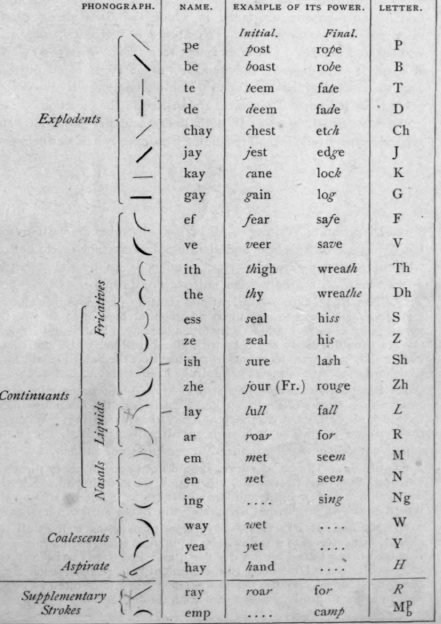 PHONOGRAPH. NAME. EXAMPLE OF ITS POWER. LETTER.
Initial. Final.
pe post rope P
be boast robe B
te teem fate T
Explodents de deem fade D
chay chest etch Ch
jay jest edge J
kay cane lock K
gay gain log G
ef fear safe F
ve veer save V
ith thigh wreath Th
Fricatives the thy wreathe Dh
ess seal hiss S
ze zeal his Z
ish sure lash Sh
Continuants zhe jour (Fr.) rouge Zh
Liquids lay lull fall L
ar roar for R
em met seem M
Nasals en net seen N
ing .... sing Ng
way wet .... W
Coalescents yea yet .... Y
Aspirate hay hand .... H
Supplementary Strokes ray roar for R
emp .... camp